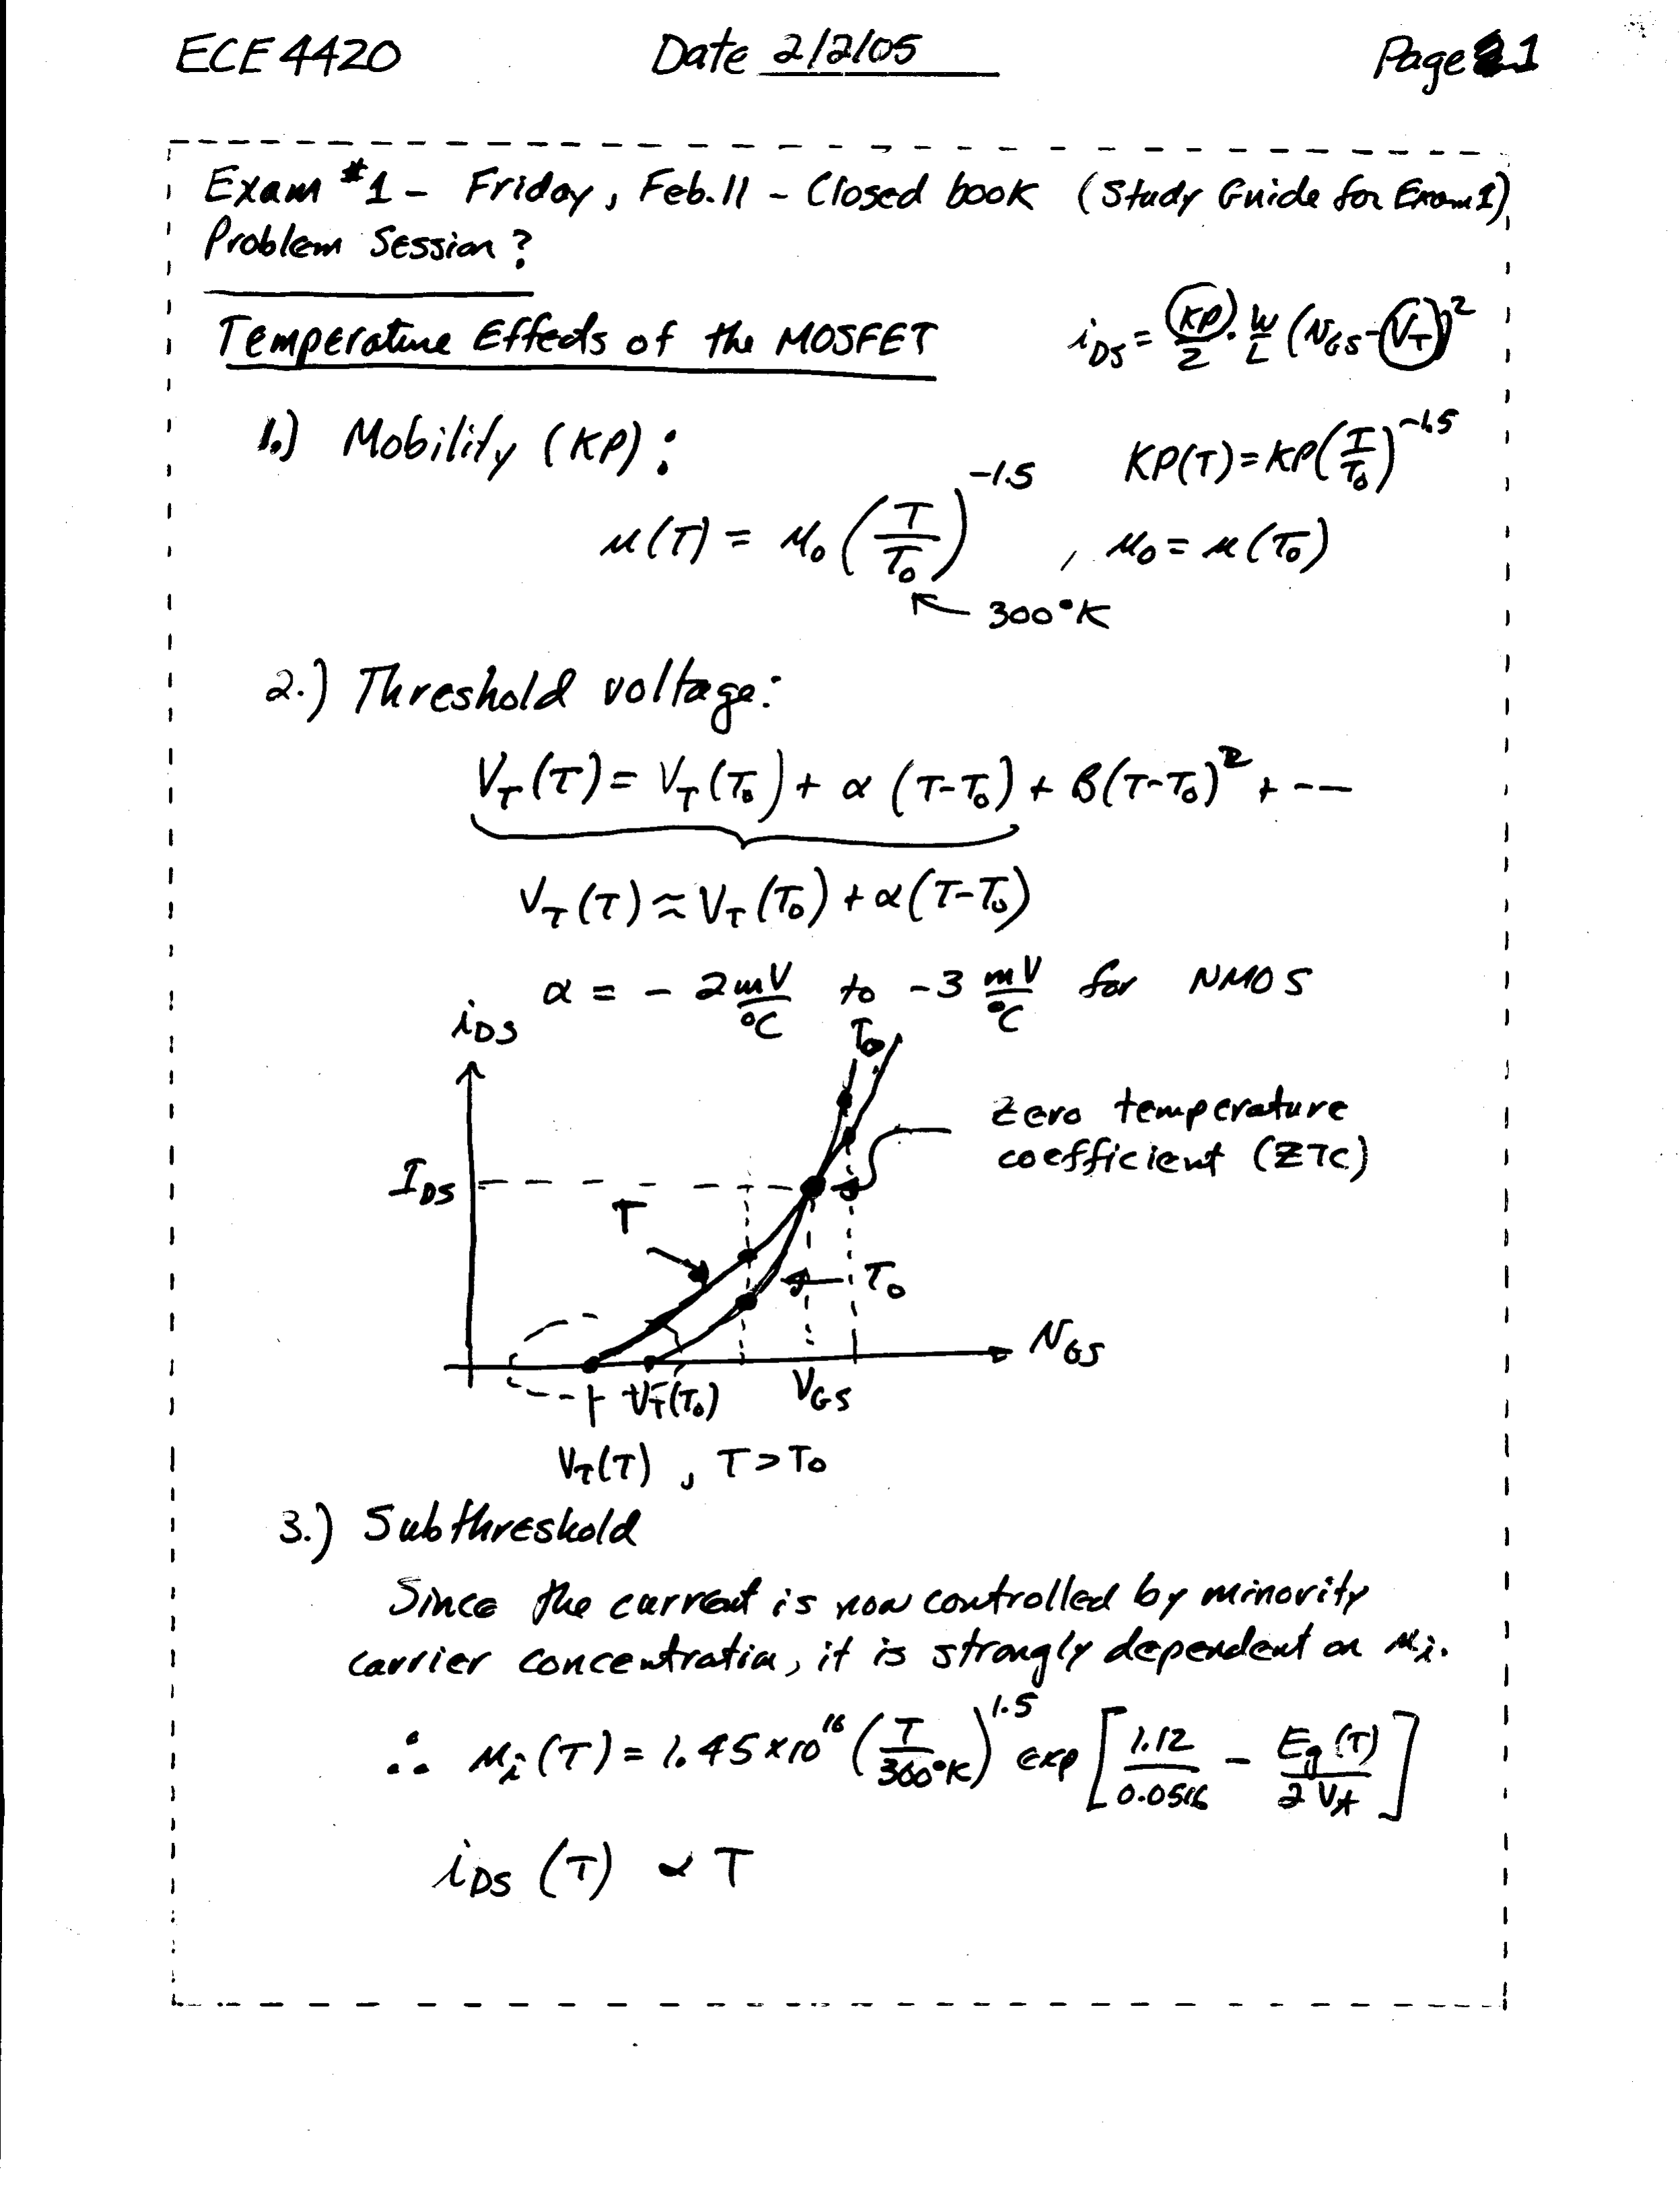 ECE 4420 Date 2/2/05 Page 1
Exam #1 - Friday, Feb. 11 - Closed book (Study Guide for Exam 1)
Problem Session?
Temperature Effects of the MOSFET i_DS = (KP)/2 · W/L (v_GS - V_T)^2
1.) Mobility (KP): KP(T) = KP(T/T_0)^-1.5
μ(T) = μ_0 (T/T_0)^-1.5 , μ_0 = μ(T_0)
300°K
2.) Threshold voltage:
V_T(T) = V_T(T_0) + α (T-T_0) + β(T-T_0)^2 + ---
V_T(T) ≈ V_T(T_0) + α(T-T_0)
α = - 2 mV/°C to -3 mV/°C for NMOS
i_DS
T_0
Zero temperature
coefficient (ZTC)
I_DS
T
T_0
v_GS
V_T(T_0) V_GS
V_T(T) , T > T_0
3.) Subthreshold
Since the current is now controlled by minority
carrier concentration, it is strongly dependent on n_i.
∴ n_i(T) = 1.45 x 10^16 (T/300°K)^1.5 exp [1.12/0.0516 - E_g(T)/2V_t]
i_DS (T) ∝ T